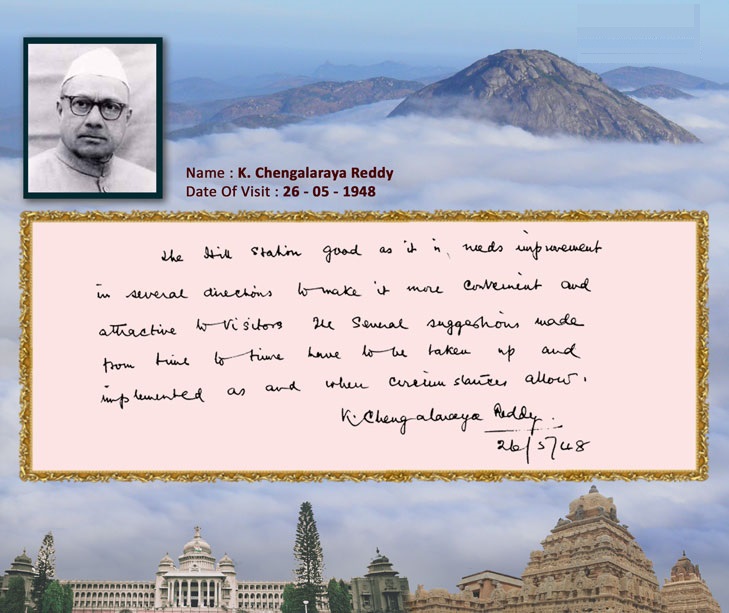 Name : K. Chengalaraya Reddy
Date Of Visit : 26 - 05 - 1948
The Hill Station good as it is, needs improvement
in several directions to make it more convenient and
attractive to visitors. The several suggestions made
from time to time have to be taken up and
implemented as and when circumstances allow.
K. Chengalaraya Reddy.
26/5/48